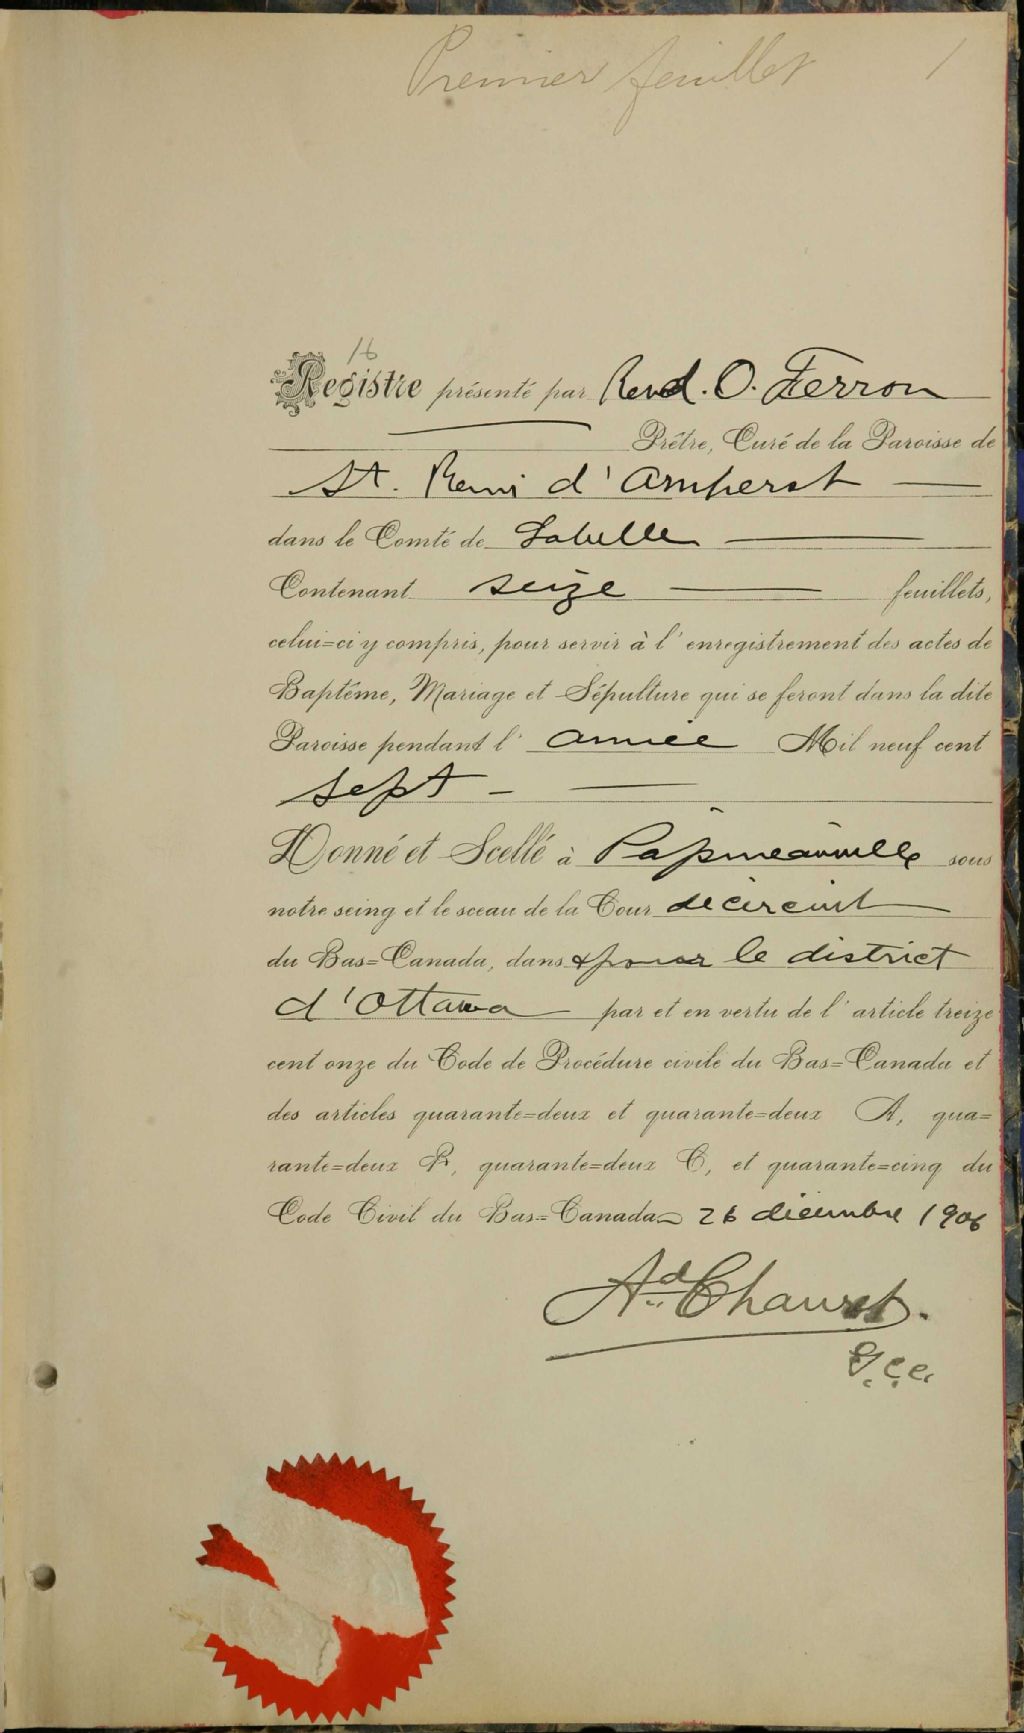 Premier feuillet 1
16
Registre présenté par Revd. O. Ferron
Prêtre, Curé de la Paroisse de
St. Remi d'Amherst
dans le Comté de Labelle
Contenant seize feuillets,
celui=ci y compris, pour servir à l'enregistrement des actes de
Baptême, Mariage et Sépulture qui se feront dans la dite
Paroisse pendant l'année Mil neuf cent
sept
Donné et Scellé à Papineauville sous
notre seing et le sceau de la Cour de circuit
du Bas=Canada, dans & pour le district
d'Ottawa par et en vertu de l'article treize
cent onze du Code de Procédure civile du Bas=Canada et
des articles quarante=deux et quarante=deux A, qua=
rante=deux B, quarante=deux C, et quarante=cinq du
Code Civil du Bas=Canada 26 décembre 1906
Ad Chauret.